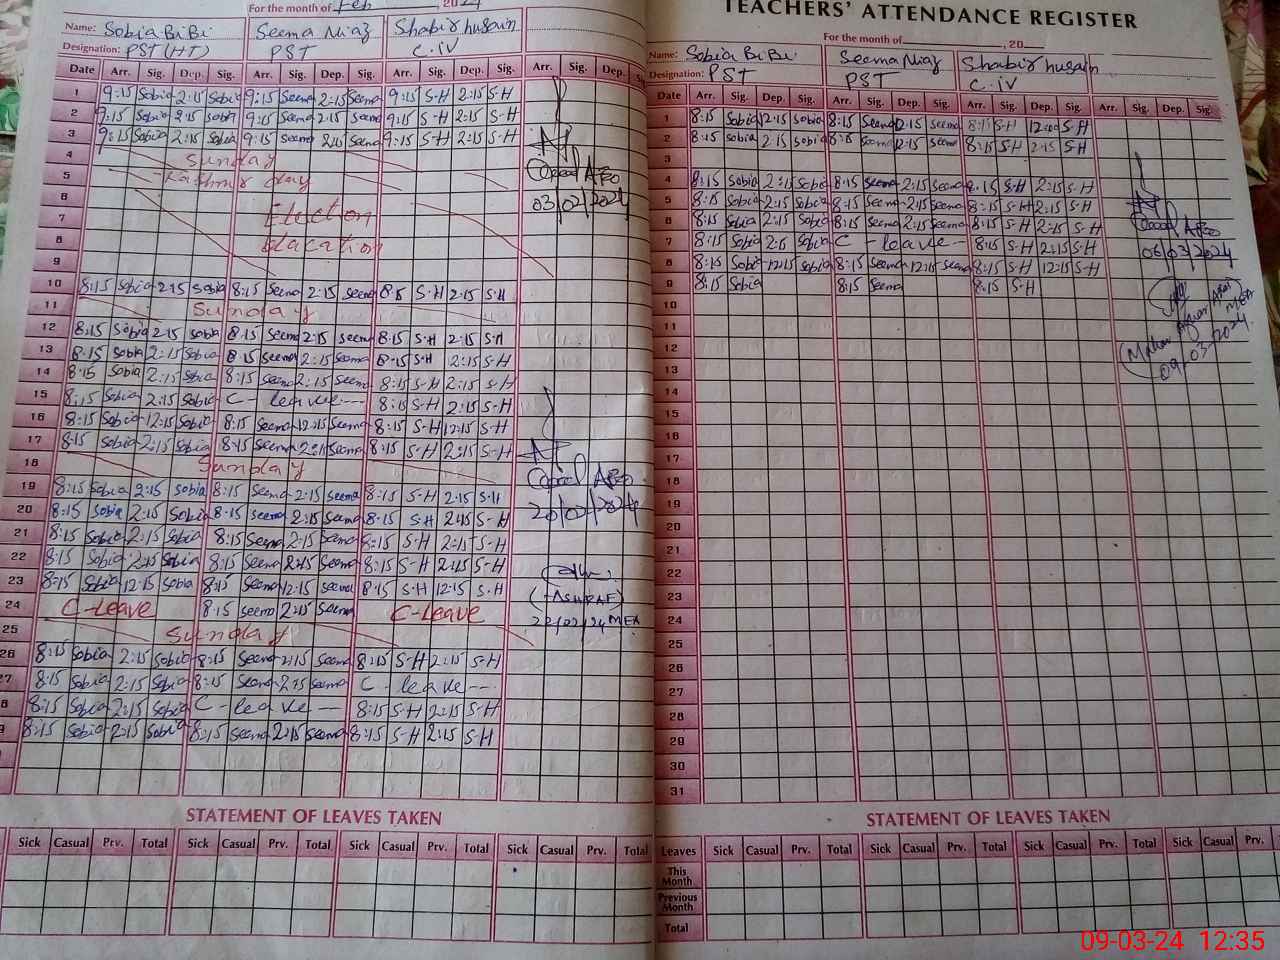 For the month of Feb, 2024
Name: Sobia BiBi Seema Niaz Shabir husain
Designation: PST(HT) PST C.iV
Date Arr. Sig. Dep. Sig. Arr. Sig. Dep. Sig. Arr. Sig. Dep. Sig. Arr. Sig. Dep. Sig.
1 9:15 Sobia 2:15 Sobia 9:15 Seema 2:15 Seema 9:15 S-H 2:15 S-H
2 9:15 Sobia 2:15 Sobia 9:15 Seema 2:15 Seema 9:15 S-H 2:15 S-H
3 9:15 Sobia 2:15 Sobia 9:15 Seema 2:15 Seema 9:15 S-H 2:15 S-H
4 Sunday
5 Kashmir day
6 Election
7
8
9
AEO
03/02/2024
10 8:15 Sobia 2:15 Sobia 8:15 Seema 2:15 Seema 8:15 S-H 2:15 S-H
11 Sunday
12 8:15 Sobia 2:15 Sobia 8:15 Seema 2:15 Seema 8:15 S-H 2:15 S-H
13 8:15 Sobia 2:15 Sobia 8:15 Seema 2:15 Seema 8:15 S-H 2:15 S-H
14 8:15 Sobia 2:15 Sobia 8:15 Seema 2:15 Seema 8:15 S-H 2:15 S-H
15 8:15 Sobia 2:15 Sobia C - leave -- 8:15 S-H 2:15 S-H
16 8:15 Sobia 12:15 Sobia 8:15 Seema 12:15 Seema 8:15 S-H 12:15 S-H
17 8:15 Sobia 2:15 Sobia 8:15 Seema 2:15 Seema 8:15 S-H 2:15 S-H
18 Sunday
19 8:15 Sobia 2:15 Sobia 8:15 Seema 2:15 Seema 8:15 S-H 2:15 S-H
20 8:15 Sobia 2:15 Sobia 8:15 Seema 2:15 Seema 8:15 S-H 2:15 S-H
AEO
20/02/2024
21 8:15 Sobia 2:15 Sobia 8:15 Seema 2:15 Seema 8:15 S-H 2:15 S-H
22 8:15 Sobia 2:15 Sobia 8:15 Seema 2:15 Seema 8:15 S-H 2:15 S-H
23 8:15 Sobia 12:15 Sobia 8:15 Seema 12:15 Seema 8:15 S-H 12:15 S-H
(ASHRAF)
22/02/24 MEA
24 C-Leave 8:15 Seema 2:15 Seema C-Leave
25 Sunday
26 8:15 Sobia 2:15 Sobia 8:15 Seema 2:15 Seema 8:15 S-H 2:15 S-H
27 8:15 Sobia 2:15 Sobia 8:15 Seema 2:15 Seema C - leave --
8 8:15 Sobia 2:15 Sobia C - leave -- 8:15 S-H 2:15 S-H
8:15 Sobia 2:15 Sobia 8:15 Seema 2:15 Seema 8:15 S-H 2:15 S-H
STATEMENT OF LEAVES TAKEN
Sick Casual Prv. Total Sick Casual Prv. Total Sick Casual Prv. Total Sick Casual Prv. Total
TEACHERS' ATTENDANCE REGISTER
For the month of , 20
Name: Sobia BiBi Seema Niaz Shabir husain
Designation: PST PST C.iV
Date Arr. Sig. Dep. Sig. Arr. Sig. Dep. Sig. Arr. Sig. Dep. Sig. Arr. Sig. Dep. Sig.
1 8:15 Sobia 12:15 Sobia 8:15 Seema 12:15 Seema 8:15 S-H S-H
2 8:15 Sobia 2:15 Sobia 8:15 Seema 12:15 Seema 8:15 S-H 2:15 S-H
3
4 8:15 Sobia 2:15 Sobia 8:15 Seema 2:15 Seema 8:15 S-H 2:15 S-H
5 8:15 Sobia 2:15 Sobia 8:15 Seema 2:15 Seema 8:15 S-H 2:15 S-H
6 8:15 Sobia 2:15 Sobia 8:15 Seema 2:15 Seema 8:15 S-H 2:15 S-H
7 8:15 Sobia 2:15 Sobia C - leave - 8:15 S-H 2:15 S-H
8 8:15 Sobia 12:15 Sobia 8:15 Seema 12:15 Seema 8:15 S-H 12:15 S-H
9 8:15 Sobia 8:15 Seema 8:15 S-H
AEO
06/03/2024
10
11
12
13
MEA
09/03/2024
14
15
16
17
18
19
20
21
22
23
24
25
26
27
28
29
30
31
STATEMENT OF LEAVES TAKEN
Leaves Sick Casual Prv. Total Sick Casual Prv. Total Sick Casual Prv. Total Sick Casual Prv.
This Month
Previous Month
Total
09-03-24 12:35